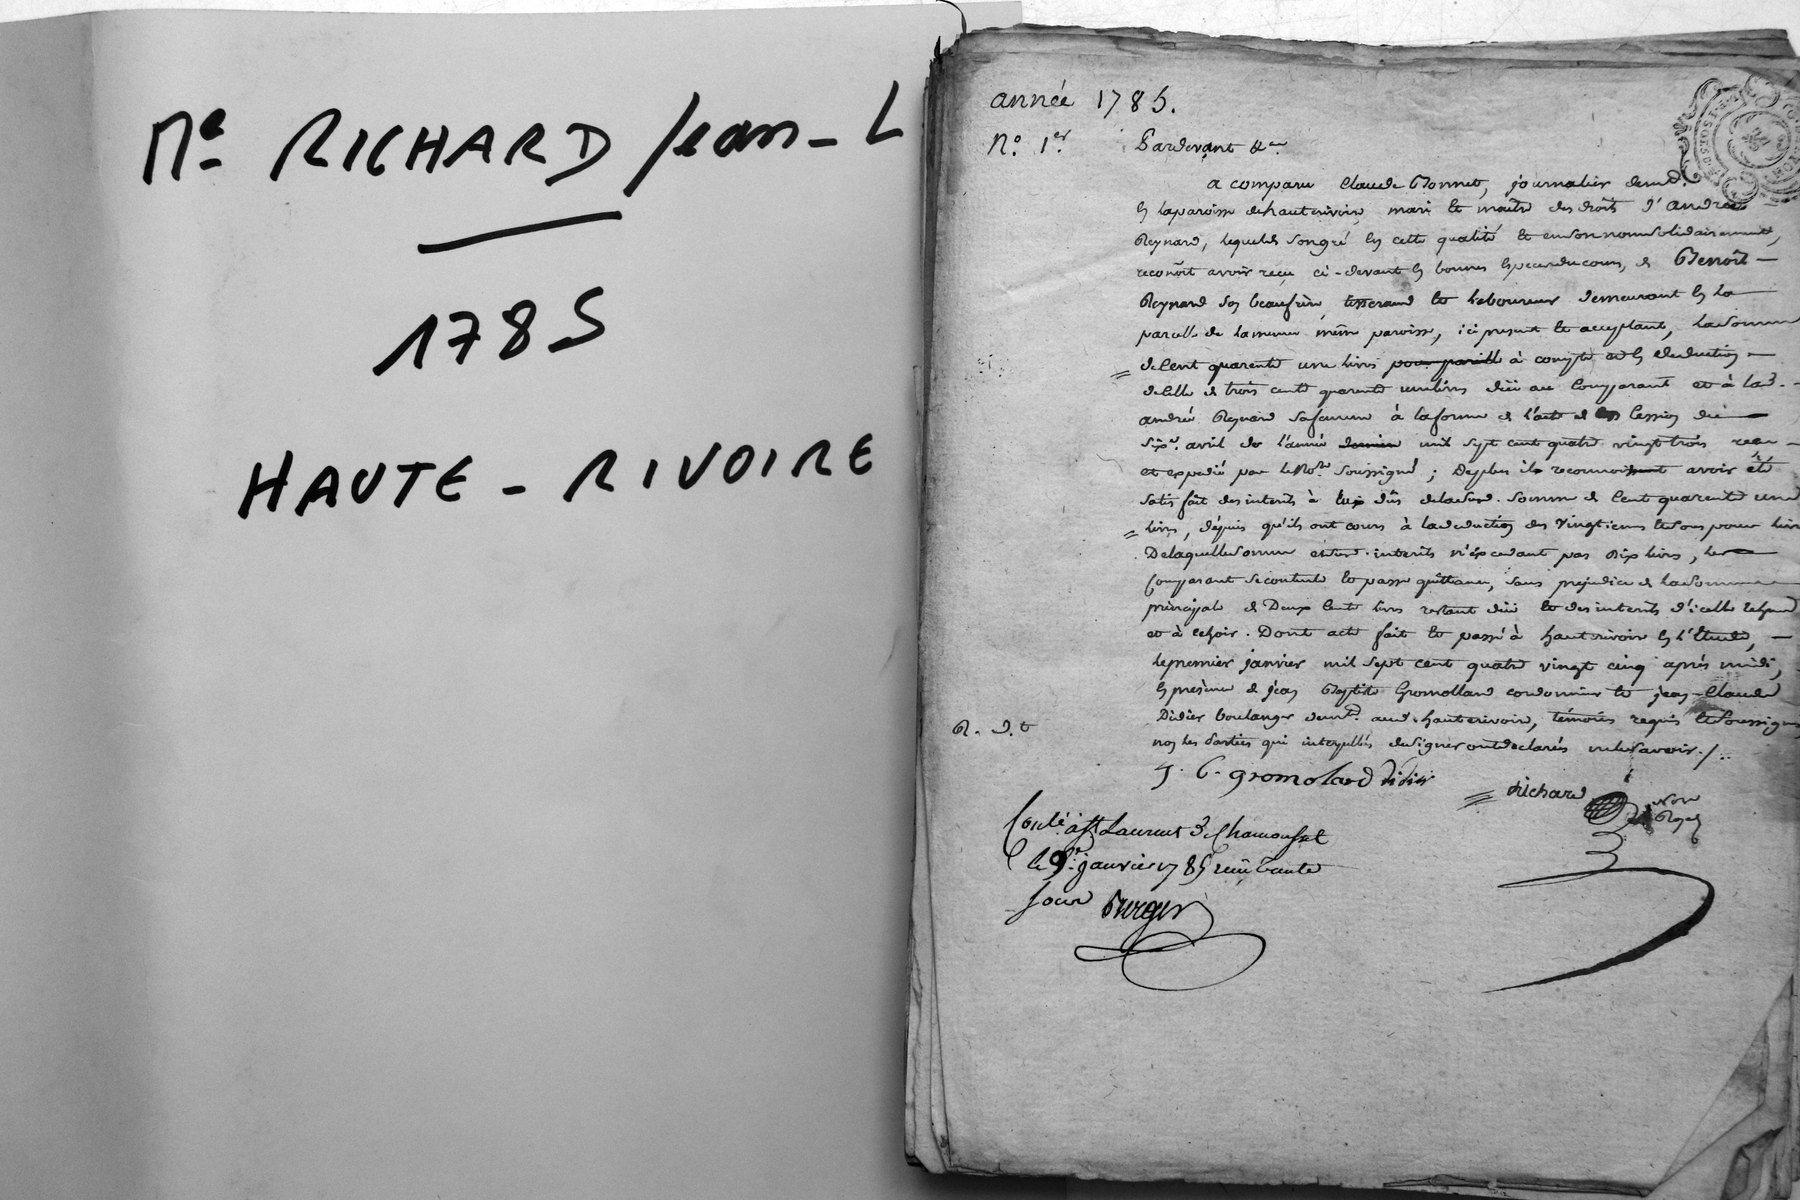 Me RICHARD Jean-L
1785
HAUTE-RIVOIRE
année 1785.
N.° 1.er
Pardevant &a
a comparu Claude Bonnet, journalier demt.
en la paroisse de hauterivoire, mari et maitre des droits d'andrée
Reynard, lequel de son gré en cette qualité et en son nom solidairement,
reconoît avoir reçu ci-devant en bonnes especes du cours, de Benoît
Reynard son beaufrère, tisserand et laboureur demeurant en la
parcelle de même paroisse, ici present et acceptant, la somme
de cent quarente une livres à compte et en deduction
de celle de trois cents quarente une livres düe au comparant et à lad.
andrée Reynard sa femme à la forme de l'acte de cession du
six.e avril de l'année mil sept cent quatre vingt trois
et expedié par le No.re soussigné ; de plus il reconnoit avoir été
satisfait des interêts à lui dûs de lad. somme de cent quarente une
livres, depuis qu'ils ont cours à la deduction des vingtiemes et sous pour livre
De laquelle somme et interêts n'éxcedant pas dix livres, le
comparant se contente et passe quittance, sans prejudice de la somme
principale de Deux cents livres restant düe et des interêts d'icelle echus
et à echoir. Dont acte fait et passé à hauterivoire en l'étude,
le premier janvier mil sept cent quatre vingt cinq après midi,
en presence de jean Baptiste Gromollard cordonnier et jean-Claude
Didier boulanger demt. aud. hauterivoire, témoins requis et soussignés
non les parties qui interpellés de signer ont declarés ne le savoir ./.
R. d. t
J. B. gromolard didier
Richard
Nore
Royal
Conlé. à St Laurent de Chamousset
le 9.e janvier 1785 reçu trente
sous Berger